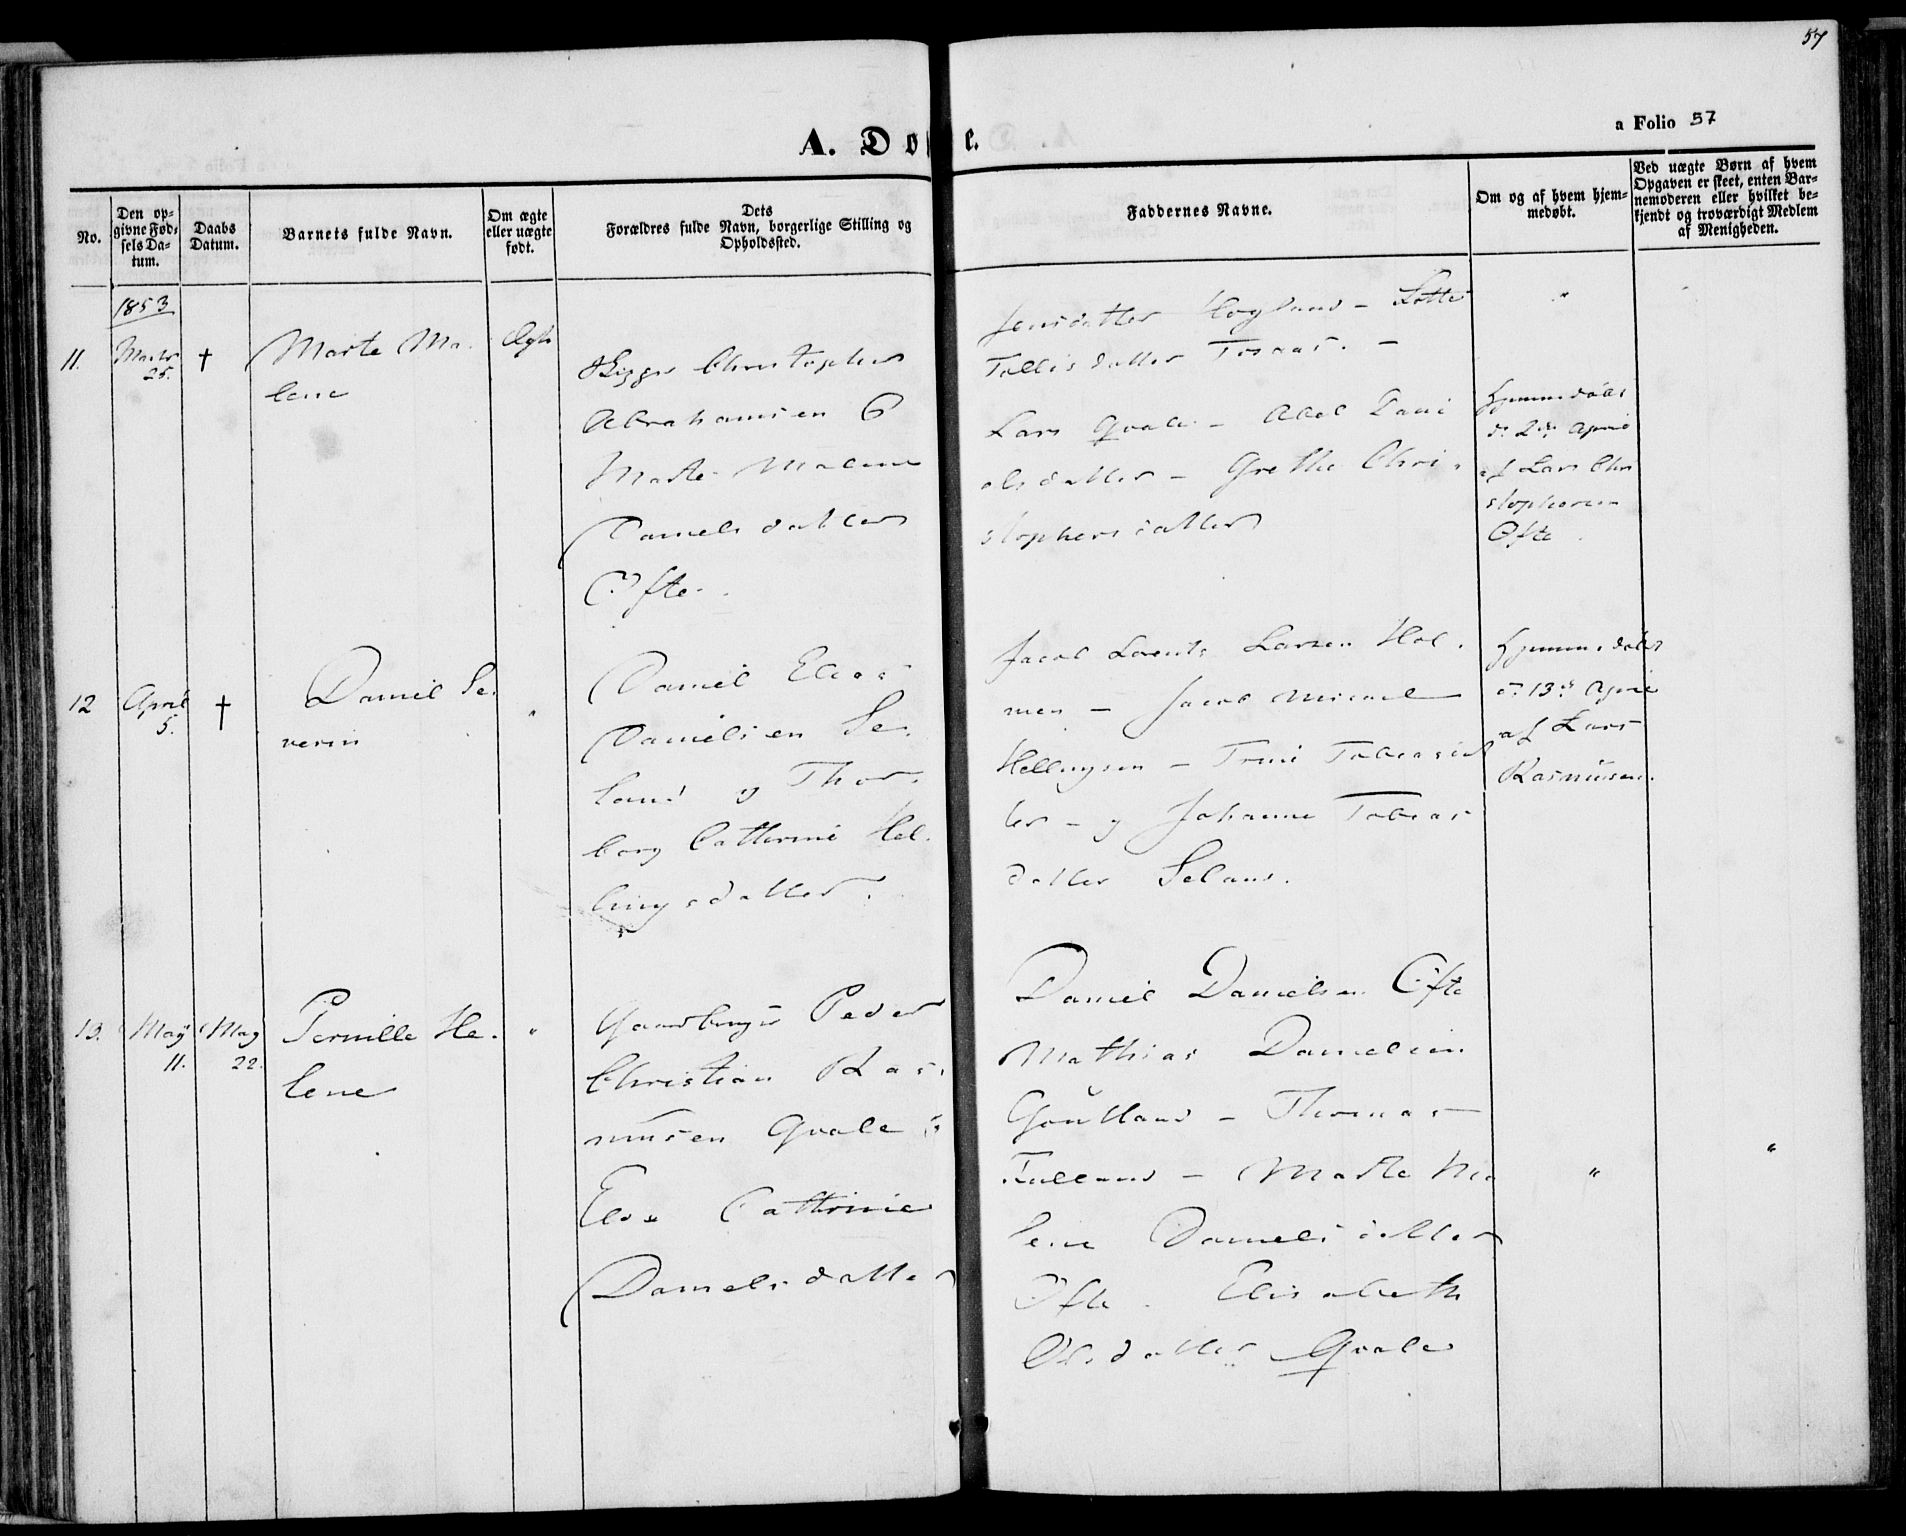 57
a Folio 57
A. Døbte.
No.
Den op-
givne Fød-
sels Da-
tum.
Daabs
Datum.
Barnets fulde Navn.
Om ægte
eller uægte
født.
Dets
Forældres fulde Navn, borgerlige Stilling og
Opholdssted.
Faddernes Navne.
Om og af hvem hjem-
medøbt.
Ved uægte Børn af hvem
Opgaven er skeet, enten Bar-
nemoderen eller hvilket be-
kjendt og troværdigt Medlem
af Menigheden.
1853
11.
Marts
25.
†
Marte Ma-
lene
Ægte
Christopher
Abrahamsen &
Marte Malene
Danielsdatter
Øfte.
Jensdatter Høyland - Lotte
Tollisdatter
Lars Qvale - Abel Dani
elsdatter - Grethe Chri-
stophersdatter
Hjemmedøbt
d. 2den April
af Lars Chri
stophersen
Øfte
12
April
5.
†
Daniel Se-
verin
"
Daniel Elias
Danielsen Se-
land og Thor-
borg Cathrine Hel-
lingsdatter.
Jacob Lorents Larsen Hol-
men - Jacob Micael
Hellingsen - Trine Tobiasdat
ter - og Johanne Tobias
datter Seland.
Hjemmedøbt
d. 13de April
af Lars
Rasmusen.
13.
May
11.
May
22.
Pernille He-
lene
"
Gaardbruger Peder
Christian Ras-
musen Qvale &
Else Cathrine
Danielsdatter
Daniel Danielsen Øfte
Mathias Danielsen
- Thomas
- Marte Ma
lene Danielsdatter
Øfte. Elisabeth
Olsdatter Qvale
"
"